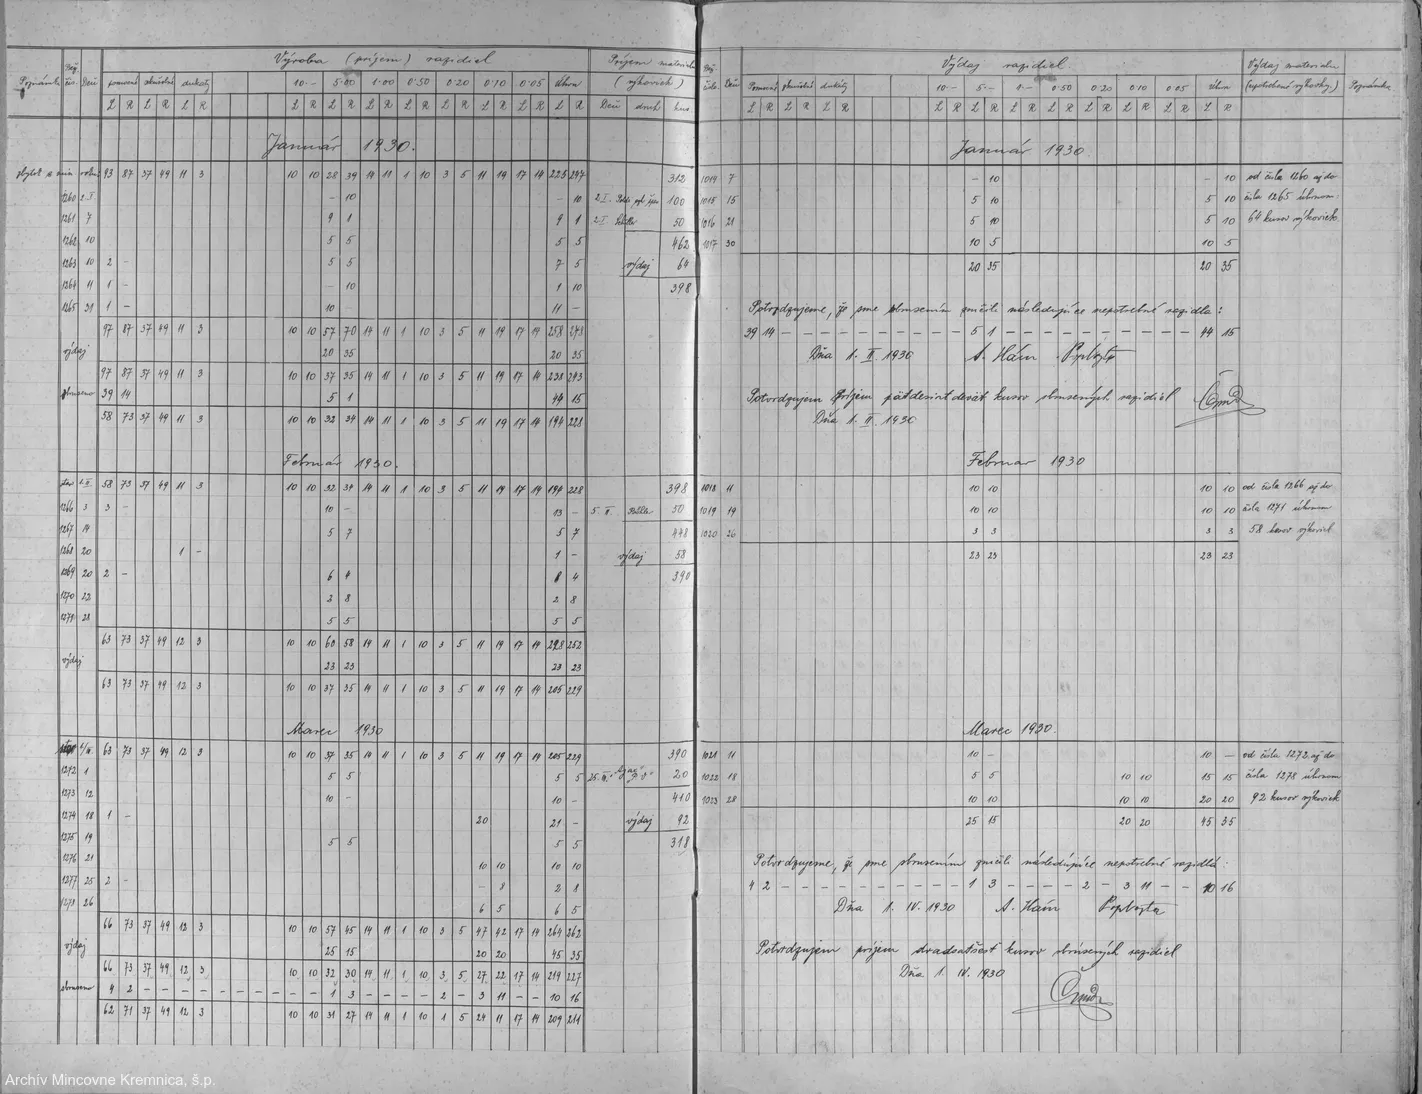 Výroba (príjem) razidiel
Príjem materialu
Poznámka
Deň
pomocné skušobné dukáty
10·— 5·00 1·00 0·50 0·20 0·10 0·05 Úhrn
(výkoviek)
L R L R L R L R L R L R L R L R L R L R L R Deň druh kus
Január 1930.
93 87 37 49 11 3 10 10 28 39 14 11 1 10 3 5 11 19 17 14 225 247 312
1260 2.I – 10 – 10 2.I. 100
1261 7 9 1 9 1 2.I 50
1262 10 5 5 5 5 462
1263 10 2 – 5 5 7 5 výdaj 64
1264 11 1 – – 10 1 10 398
1265 31 1 – 10 – 11 –
97 87 37 49 11 3 10 10 57 70 14 11 1 10 3 5 11 19 17 14 258 278
výdaj 20 35 20 35
97 87 37 49 11 3 10 10 37 35 14 11 1 10 3 5 11 19 17 14 238 243
zbrúseno 39 14 5 1 44 15
58 73 37 49 11 3 10 10 32 34 14 11 1 10 3 5 11 19 17 14 194 228
Február 1930.
stav 1.II 58 73 37 49 11 3 10 10 32 34 14 11 1 10 3 5 11 19 17 14 194 228 398
1266 3 3 – 10 – 13 – 5. II. 50
1267 14 5 7 5 7 448
1268 20 1 – 1 – výdaj 58
1269 20 2 – 6 4 8 4 390
1270 22 2 8 2 8
1271 28 5 5 5 5
63 73 37 49 12 3 10 10 60 58 14 11 1 10 3 5 11 19 17 14 228 252
výdaj 23 23 23 23
63 73 37 49 12 3 10 10 37 35 14 11 1 10 3 5 11 19 17 14 205 229
Marec 1930
stav 1/III 63 73 37 49 12 3 10 10 37 35 14 11 1 10 3 5 11 19 17 14 205 229 390
1272 1 5 5 5 5 25.III. 20
1273 12 10 – 10 – 410
1274 18 1 – 20 21 – výdaj 92
1275 19 5 5 5 5 318
1276 21 10 10 10 10
1277 25 2 – – 8 2 8
1278 26 6 5 6 5
66 73 37 49 12 3 10 10 57 45 14 11 1 10 3 5 47 42 17 14 264 262
výdaj 25 15 20 20 45 35
66 73 37 49 12 3 10 10 32 30 14 11 1 10 3 5 27 22 17 14 219 227
zbrúseno 4 2 – – – – – – – – 1 3 – – – – 2 – 3 11 – – 10 16
62 71 37 49 12 3 10 10 31 27 14 11 1 10 1 5 24 11 17 14 209 211
Výdaj razidiel
Výdaj materialu
Deň Pomocné skušobné dukáty 10·— 5·— 1·— 0·50 0·20 0·10 0·05 Úhrn (upotrebené výkovky.) Poznámka
L R L R L R L R L R L R L R L R L R L R L R
Január 1930
1014 7 – 10 – 10 od čísla 1260 až do
1015 15 5 10 5 10 čísla 1265 úhrnom
1016 21 5 10 5 10 64 kusov výkoviek
1017 30 10 5 10 5
20 35 20 35
Potvrdzujeme, že sme zbrusením zničili následujúce nepotrebné razidla:
39 14 – – – – – – – – – – 5 1 – – – – – – – – – – 44 15
Dňa 1. II. 1930 A. Hám
Potvrdzujem príjem päťdesiatdeväť kusov zbrúsených razidiel
Dňa 1. II. 1930
Február 1930
1018 11 10 10 10 10 od čísla 1266 až do
1019 19 10 10 10 10 čísla 1271 úhrnom
1020 26 3 3 3 3 58 kusov výkoviek
23 23 23 23
Marec 1930.
1021 11 10 – 10 – od čísla 1272 až do
1022 18 5 5 10 10 15 15 čísla 1278 úhrnom
1023 28 10 10 10 10 20 20 92 kusov výkoviek
25 15 20 20 45 35
Potvrdzujeme, že sme zbrusením zničili následujúce nepotrebné razidlá:
4 2 – – – – – – – – – – 1 3 – – – – 2 – 3 11 – – 10 16
Dňa 1. IV. 1930 A. Hám
Potvrdzujem príjem dvadsaťšesť kusov zbrúsených razidiel
Dňa 1. IV. 1930
Archív Mincovne Kremnica, š.p.